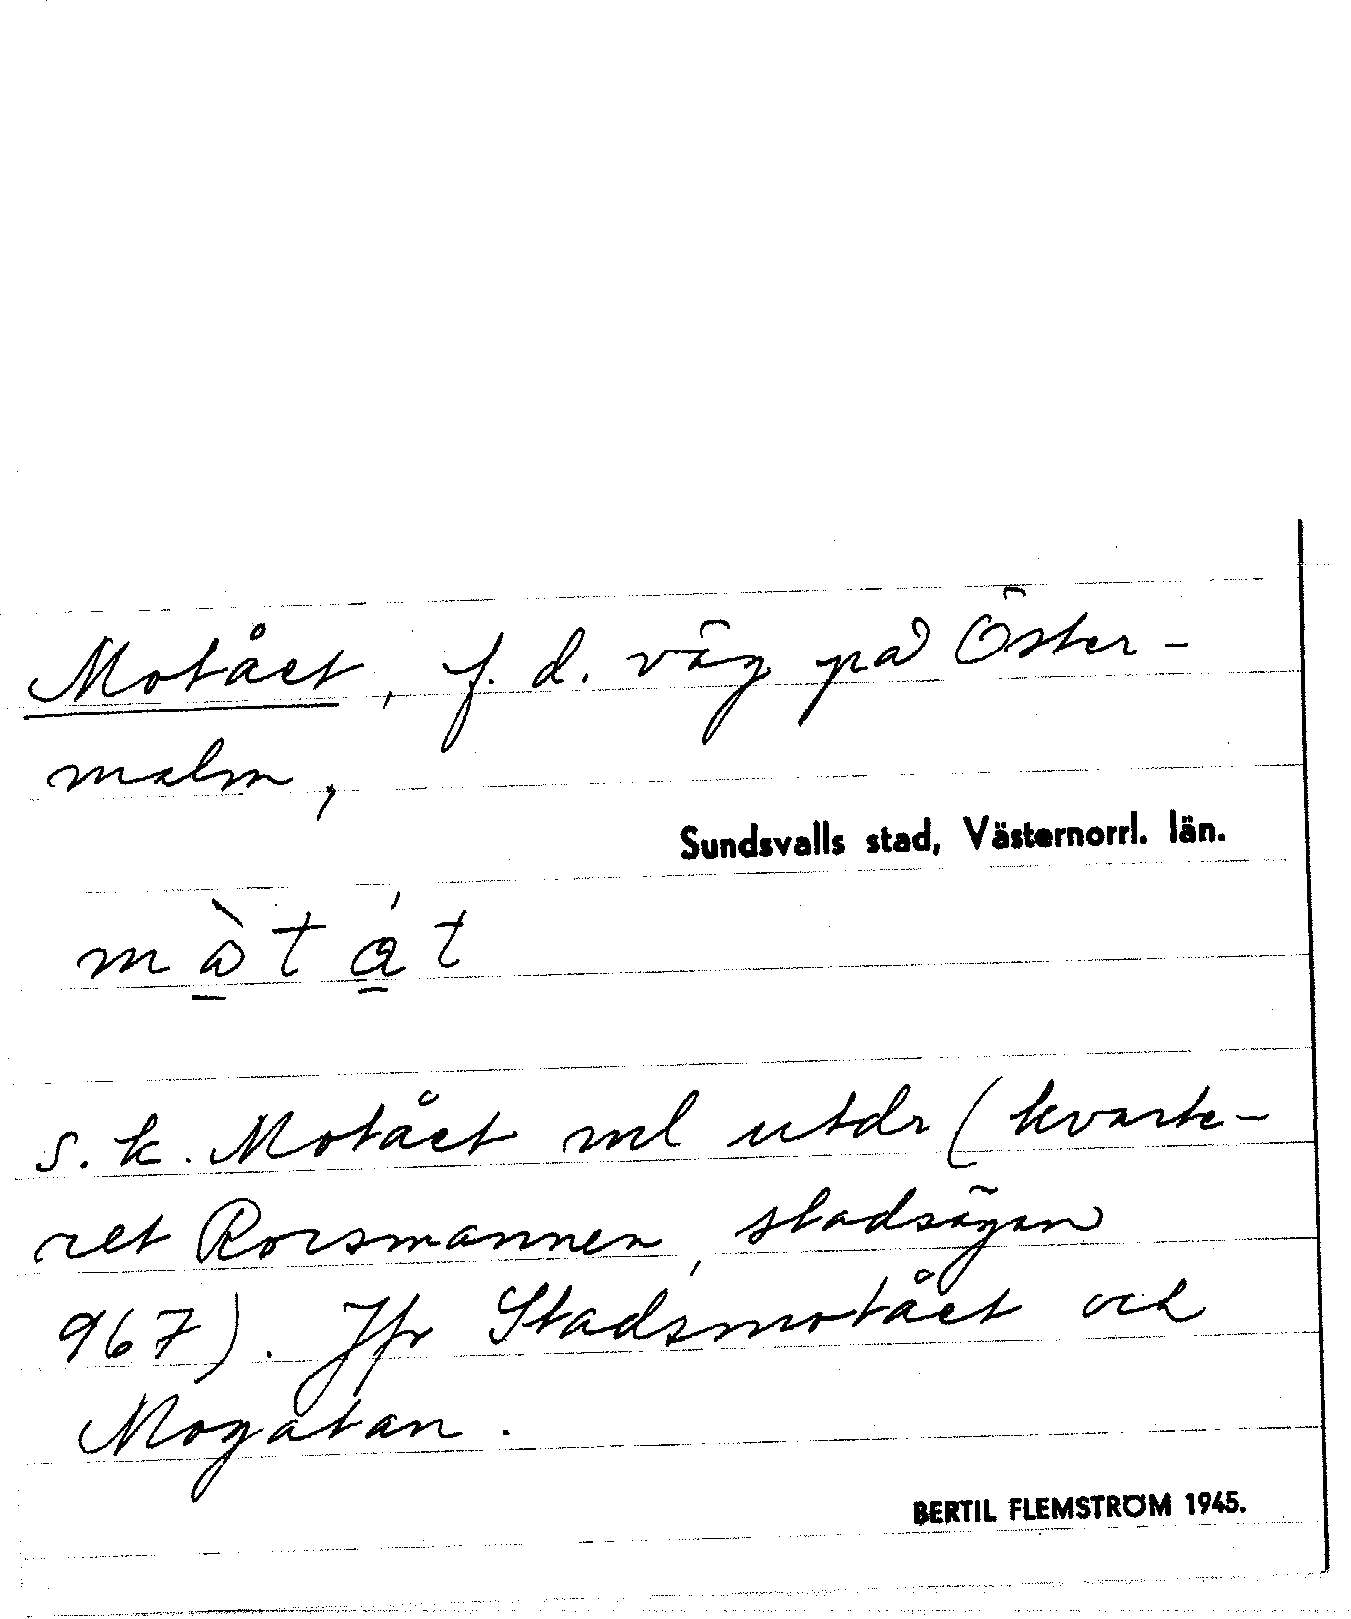 Motået, f. d. väg på Öster-
malm,
Sundsvalls stad, Västernorrl. län.
m t t
s. k. Motået ml utdr (kvarte-
ret Rorsmannen, stadsägan
967). Jfr Stadsmotået och
Mogatan.
BERTIL FLEMSTRÖM 1945.